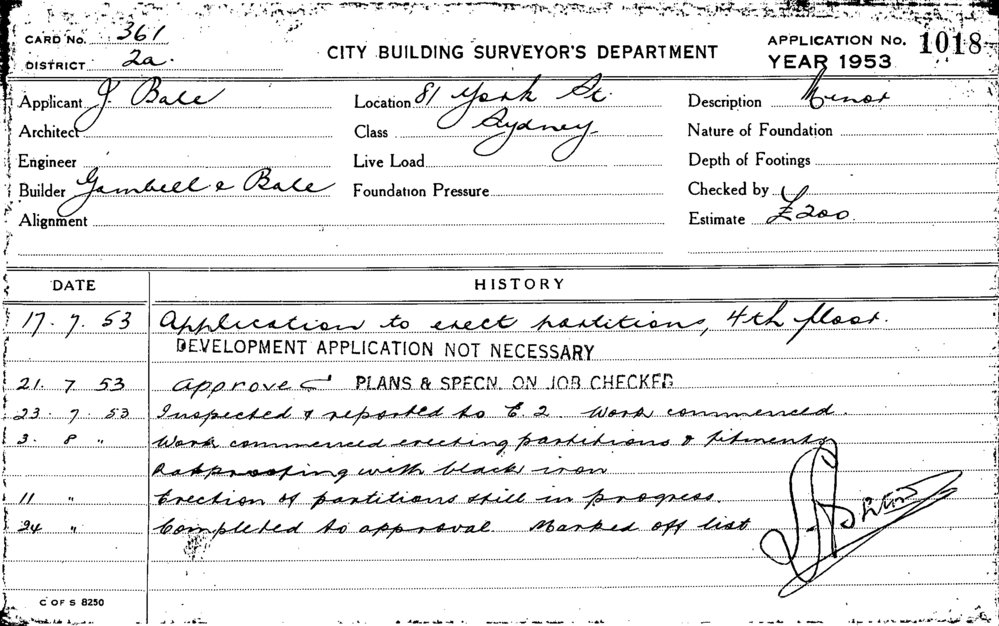 CARD No. 361
DISTRICT 2a.
CITY BUILDING SURVEYOR'S DEPARTMENT
APPLICATION No. 1018
YEAR 1953
Applicant J. Bale
Location 81 York St.
Description Minor
Architect
Class Sydney.
Nature of Foundation
Engineer
Live Load
Depth of Footings
Builder Gambell & Bale
Foundation Pressure
Checked by
Alignment
Estimate £200.
DATE HISTORY
17.7.53 Application to erect partitions, 4th floor.
DEVELOPMENT APPLICATION NOT NECESSARY
21.7 53 Approved PLANS & SPECN. ON JOB CHECKED
23.7.53 Inspected & reported to E.2. Work commenced.
3. 8 " Work commenced erecting partitions & fitments
Ratproofing with black iron
11 " Erection of partitions still in progress.
24 " Completed to approval. Marked off list
C OF S 8250